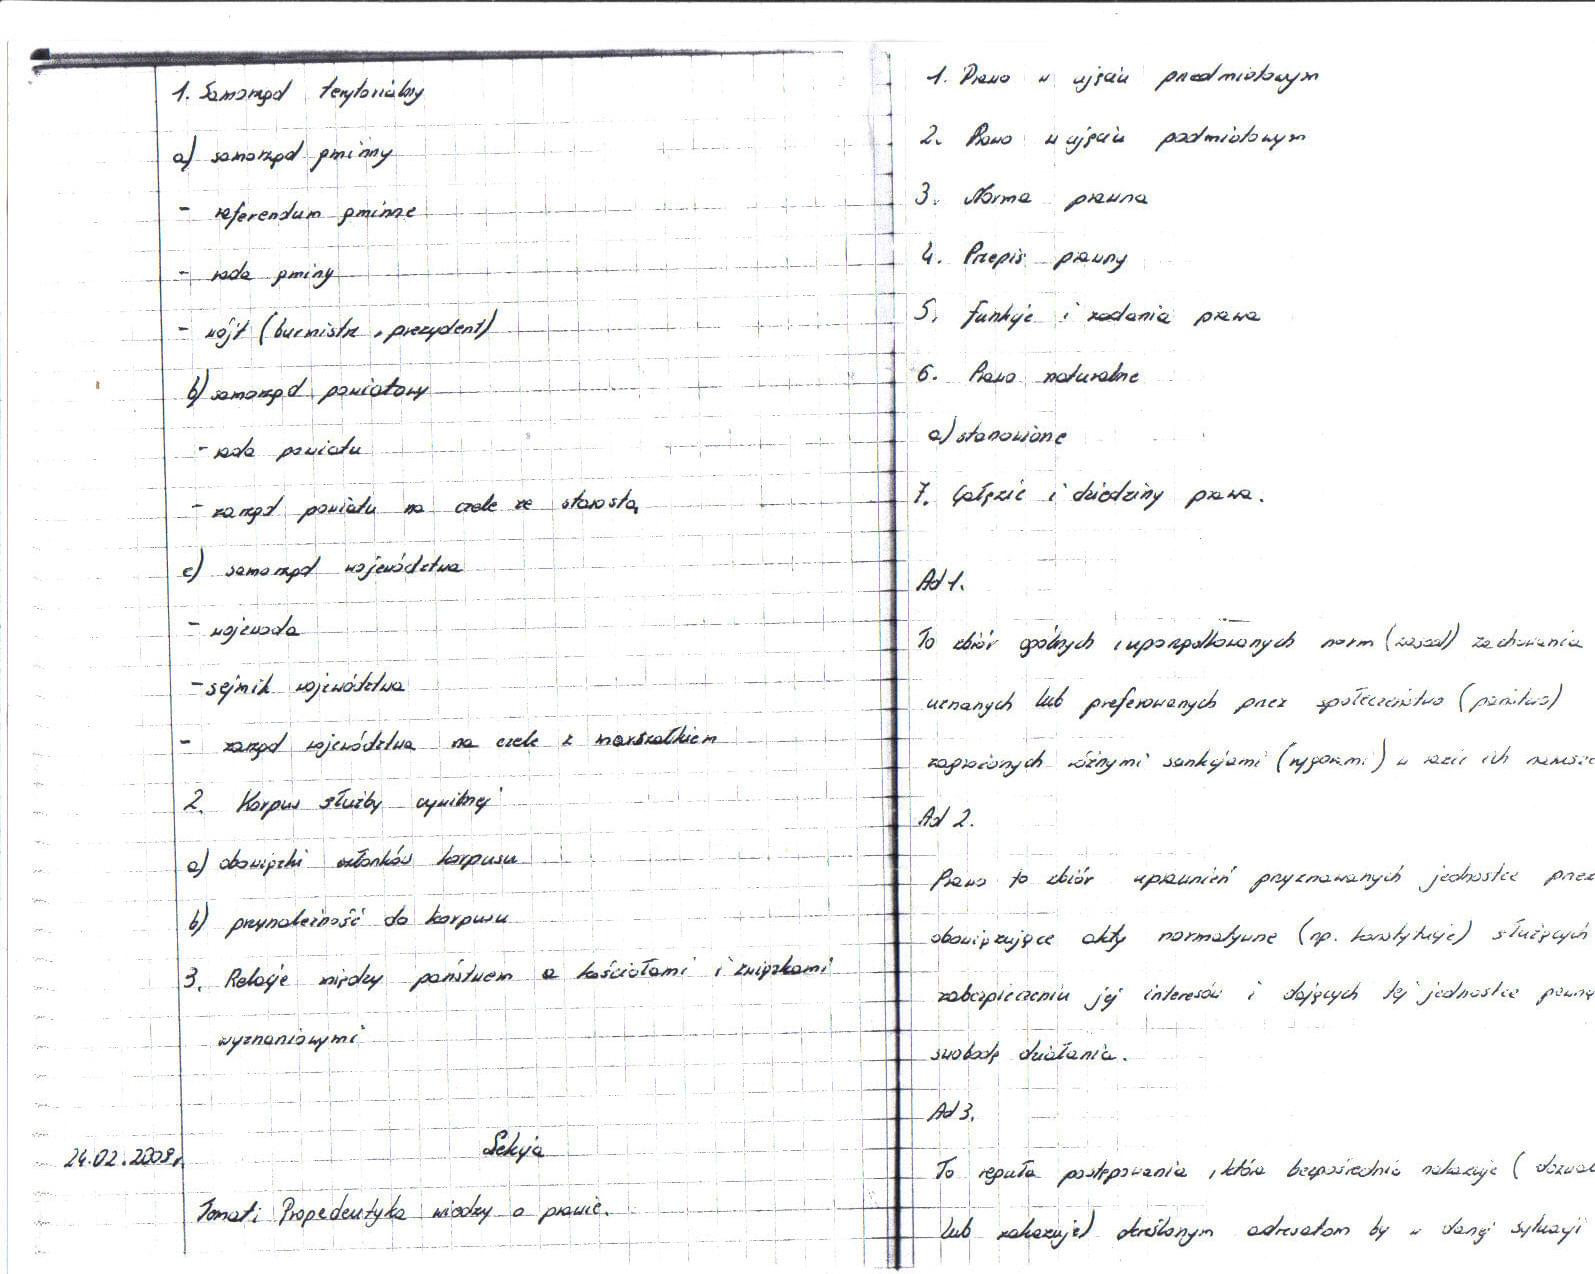 1. Samorząd terytorialny
a) samorząd gminny
- referendum gminne
- rada gminy
- wójt (burmistrz, prezydent)
b) samorząd powiatowy
- rada powiatu
- zarząd powiatu na czele ze starostą
c) samorząd województwa
- wojewoda
- sejmik województwa
- zarząd województwa na czele z marszałkiem
2. Korpus służby cywilnej
a) obowiązki członków korpusu
b) przynależność do korpusu
3. Relacje między państwem a kościołami i związkami
wyznaniowymi
24.02.2009r. Lekcja
Temat: Propedeutyka wiedzy o prawie.
1. Prawo w ujęciu przedmiotowym
2. Prawo w ujęciu podmiotowym
3. Norma prawna
4. Przepis prawny
5. Funkcje i zadania prawa
6. Prawo naturalne
a) stanowione
7. Gałęzie i dziedziny prawa.
Ad 1.
To zbiór ogólnych i uporządkowanych norm (zasad) zachowania
uznanych lub preferowanych przez społeczeństwo (państwo)
zagrożonych różnymi sankcjami (rygorami) w razie ich narusze
Ad 2.
Prawo to zbiór uprawnień przyznawanych jednostce przez
obowiązujące akty normatywne (np. konstytucje) służących
zabezpieczeniu jej interesów i dających tej jednostce pewną
swobodę działania.
Ad 3.
To reguła postępowania, która bezpośrednio nakazuje (dozwal
lub zakazuje) określonym adresatom by w danej sytuacji